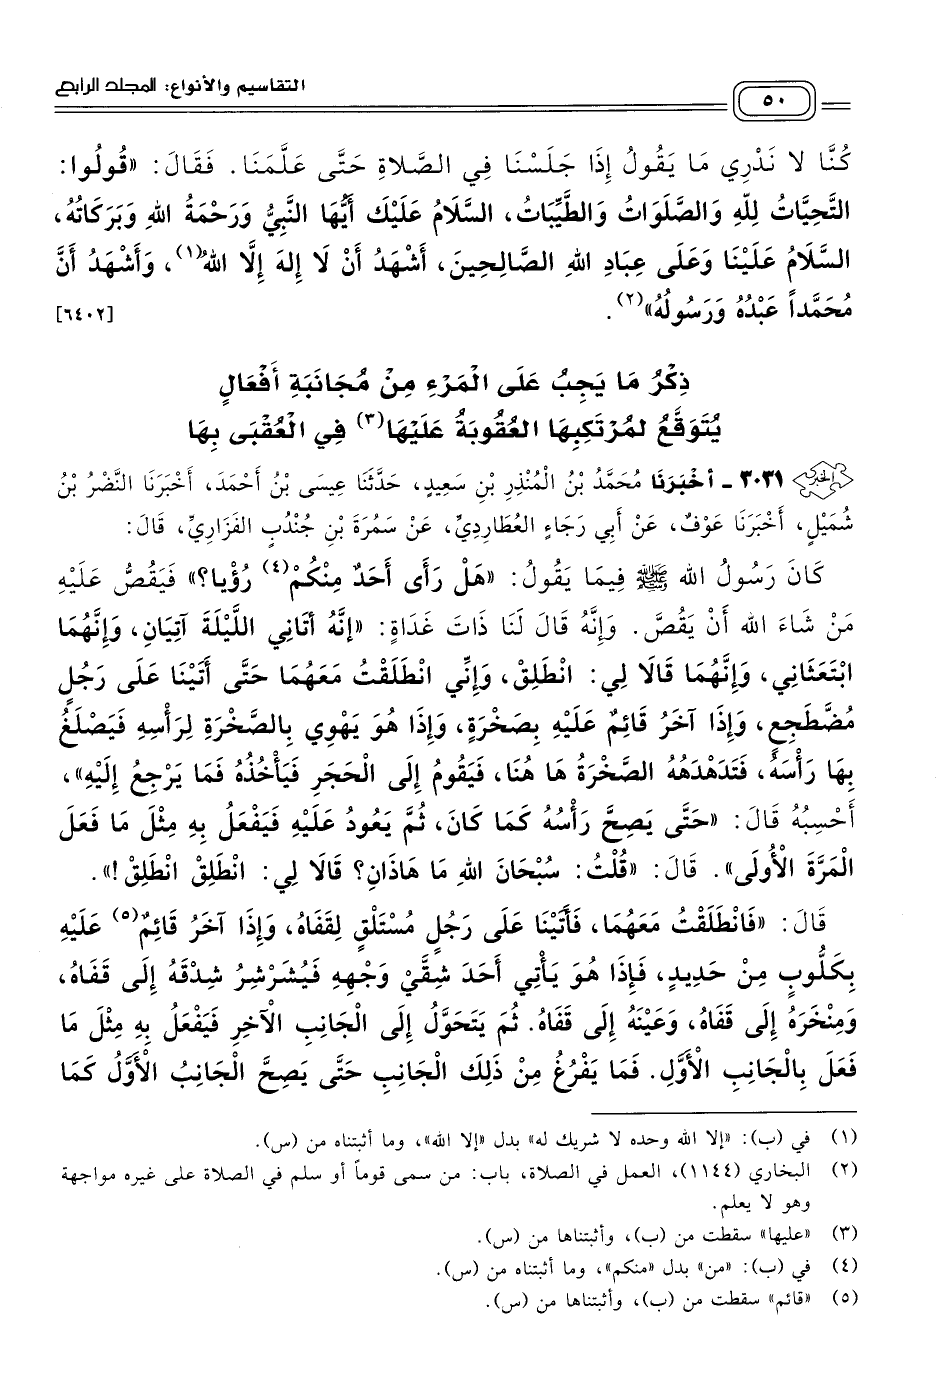 التقاسيم والأنواع: المجلد الرابع
٥٠
كُنَّا لَا نَدْرِي مَا يَقُولُ إِذَا جَلَسْنَا فِي الصَّلَاةِ حَتَّى عَلَّمَنَا. فَقَالَ: «قُولُوا:
التَّحِيَّاتُ لِلّهِ وَالصَّلَوَاتُ وَالطَّيِّبَاتُ، السَّلَامُ عَلَيْكَ أَيُّهَا النَّبِيُّ وَرَحْمَةُ اللهِ وَبَرَكَاتُهُ،
السَّلَامُ عَلَيْنَا وَعَلَى عِبَادِ اللهِ الصَّالِحِينَ، أَشْهَدُ أَنْ لَا إِلهَ إِلَّا اللهُ(١)، وَأَشْهَدُ أَنَّ
مُحَمَّداً عَبْدُهُ وَرَسُولُهُ»(٢). [٦٤٠٢]
ذِكْرُ مَا يَجِبُ عَلَى الْمَرْءِ مِنْ مُجَانَبَةِ أَفْعَالٍ
يُتَوَقَّعُ لمُرْتَكِبِهَا العُقُوبَةُ عَلَيْهَا(٣) فِي الْعُقْبَى بِهَا
٣٠٣١ - أخْبَرَنَا مُحَمَّدُ بْنُ الْمُنْذِرِ بْنِ سَعِيدٍ، حَدَّثَنَا عِيسَى بْنُ أَحْمَدَ، أَخْبَرَنَا النَّضْرُ بْنُ
شُمَيْلٍ، أَخْبَرَنَا عَوْفٌ، عَنْ أَبِي رَجَاءٍ العُطَارِدِيِّ، عَنْ سَمُرَةَ بْنِ جُنْدُبٍ الفَزَارِيِّ، قَالَ:
كَانَ رَسُولُ الله ﷺ فِيمَا يَقُولُ: «هَلْ رَأَى أَحَدٌ مِنْكُمْ(٤) رُؤْيا؟» فَيَقُصُّ عَلَيْهِ
مَنْ شَاءَ الله أَنْ يَقُصَّ. وَإِنَّهُ قَالَ لَنَا ذَاتَ غَدَاةٍ: «إِنَّهُ أَتَانِي اللَّيْلَةَ آتِيَانِ، وَإِنَّهُمَا
ابْتَعَثَانِي، وَإِنَّهُمَا قَالَا لِي: انْطَلِقْ، وَإِنِّي انْطَلَقْتُ مَعَهُمَا حَتَّى أَتَيْنَا عَلَى رَجُلٍ
مُضْطَجِعٍ، وَإِذَا آخَرُ قَائِمٌ عَلَيْهِ بِصَخْرَةٍ، وَإِذَا هُوَ يَهْوِي بِالصَّخْرَةِ لِرَأْسِهِ فَيَصْلَغُ
بِهَا رَأْسَهُ، فَتَدَهْدَهُهُ الصَّخْرَةُ هَا هُنَا، فَيَقُومُ إِلَى الْحَجَرِ فَيَأْخُذُهُ فَمَا يَرْجِعُ إِلَيْهِ»،
أَحْسِبُهُ قَالَ: «حَتَّى يَصِحَّ رَأْسُهُ كَمَا كَانَ، ثُمَّ يَعُودُ عَلَيْهِ فَيَفْعَلُ بِهِ مِثْلَ مَا فَعَلَ
الْمَرَّةَ الْأُولَى». قَالَ: «قُلْتُ: سُبْحَانَ اللهِ مَا هَاذَانِ؟ قَالَا لِي: انْطَلِقْ انْطَلِقْ!».
قَالَ: «فَانْطَلَقْتُ مَعَهُمَا، فَأَتَيْنَا عَلَى رَجُلٍ مُسْتَلْقٍ لِقَفَاهُ، وَإِذَا آخَرُ قَائِمٌ(٥) عَلَيْهِ
بِكَلُّوبٍ مِنْ حَدِيدٍ، فَإِذَا هُوَ يَأْتِي أَحَدَ شِقَّيْ وَجْهِهِ فَيُشَرْشِرُ شِدْقَهُ إِلَى قَفَاهُ،
وَمِنْخَرَهُ إِلَى قَفَاهُ، وَعَيْنَهُ إِلَى قَفَاهُ. ثُمَ يَتَحَوَّلُ إِلَى الْجَانِبِ الْآخِرِ فَيَفْعَلُ بِهِ مِثْلَ مَا
فَعَلَ بِالْجَانِبِ الْأَوَّلِ. فَمَا يَفْرُغُ مِنْ ذَلِكَ الْجَانِبِ حَتَّى يَصِحَّ الْجَانِبُ الْأَوَّلُ كَمَا
(١) في (ب): «إلا الله وحده لا شريك له» بدل «إلا الله»، وما أثبتناه من (س).
(٢) البخاري (١١٤٤)، العمل في الصلاة، باب: من سمى قوماً أو سلم في الصلاة على غيره مواجهة
وهو لا يعلم.
(٣) «عليها» سقطت من (ب)، وأثبتناها من (س).
(٤) في (ب): «من» بدل «منكم»، وما أثبتناه من (س).
(٥) «قائم» سقطت من (ب)، وأثبتناها من (س).